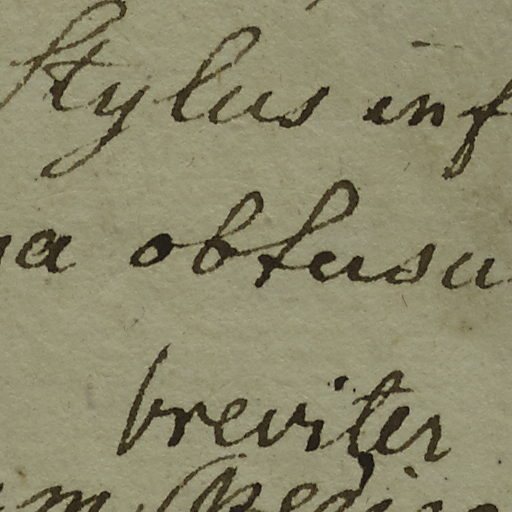 Stylus inf
a obtusu
breviter